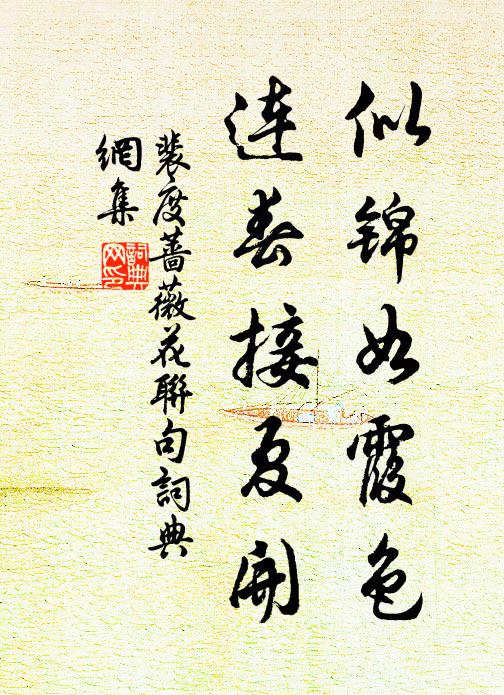 似錦如霞色
連春接夏開
裴度薔薇花聯句詞典
網集
詞典
网印